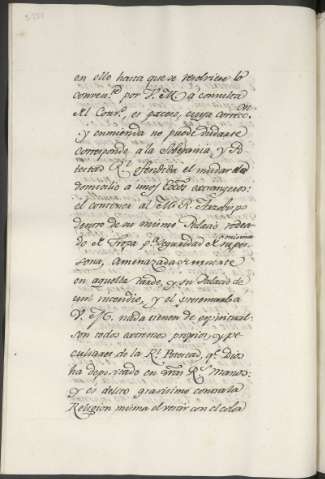 en ello hasta que se resolviese lo
conven.te por V. M. á consulta
del Cons.o es exceso, cuya correcc.on
y enmienda no puede dudarse
corresponde á la Soberania, y Po
testad R.l ofendida el mudar
domicilio a unos Ecc.os extrangeros:
el contener al M. R. Arzobispo
dentro de su mismo Palacio rodea
do de Tropa p.a seguridad de su misma per
sona, amenazada
en aquella tarde, y su Palacio de
un incendio, y el
V. M. nada tienen de espiritual:
son todos extremos propios, y pe
culiares de la R.l Potestad, q.e Dios
ha depositado en Vras R.s manos:
y es delito gravisimo contra la
Religion misma el vestir con el color